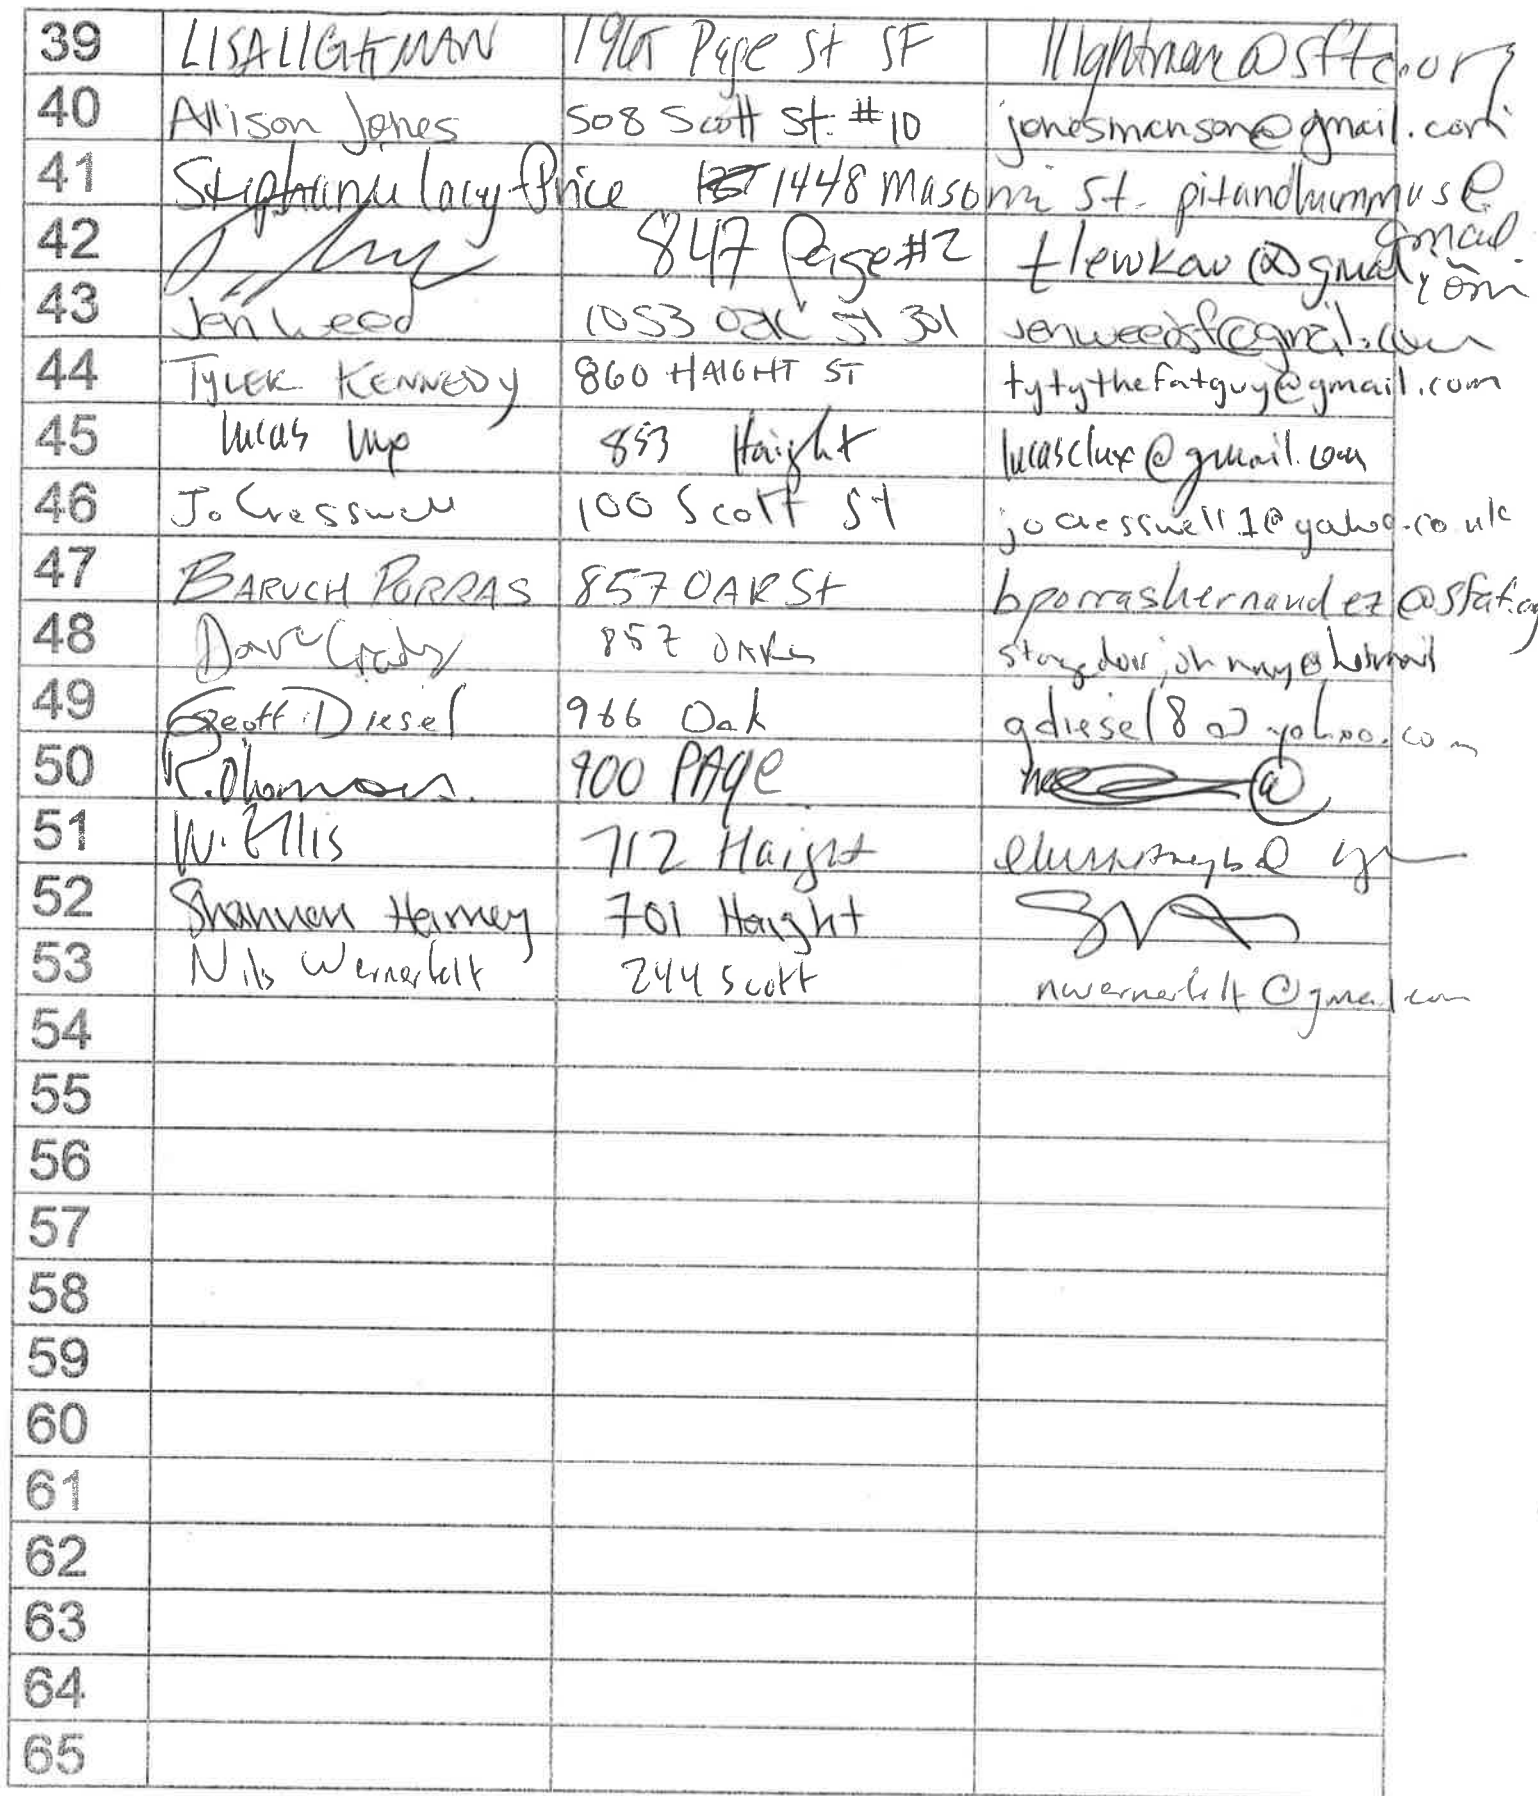 39 LISA LIGHTMAN 1965 Page St SF llightman@sftc.org
40 Allison Jones 508 Scott St. #10 jonesmanson@gmail.com
41 Stephanie Lacy-Price 1448 Masonic St. pitandhummus@gmail.com
42 847 Page #2 tlewkow@gmail
43 Jen Weed 1053 Oak St 301 jenweedsf@gmail.com
44 TYLER KENNEDY 860 HAIGHT ST tytythefatguy@gmail.com
45 Lucas Lux 853 Haight lucasclux@gmail.com
46 Jo Cresswell 100 Scott St jocresswell1@yahoo.co.uk
47 BARUCH PORRAS 857 OAK St bporrashernandez@sfai.
48 Dave Grady 857 OAK stagedoorjohnny@hotmail
49 Geoff Diesel 966 Oak gdiesel8@yahoo.com
50 900 PAGE @
51 W. Ellis 712 Haight
52 Shannon Harney 701 Haight
53 Nils Wernerfelt 244 Scott nwernerfelt@gmail.com
54
55
56
57
58
59
60
61
62
63
64
65